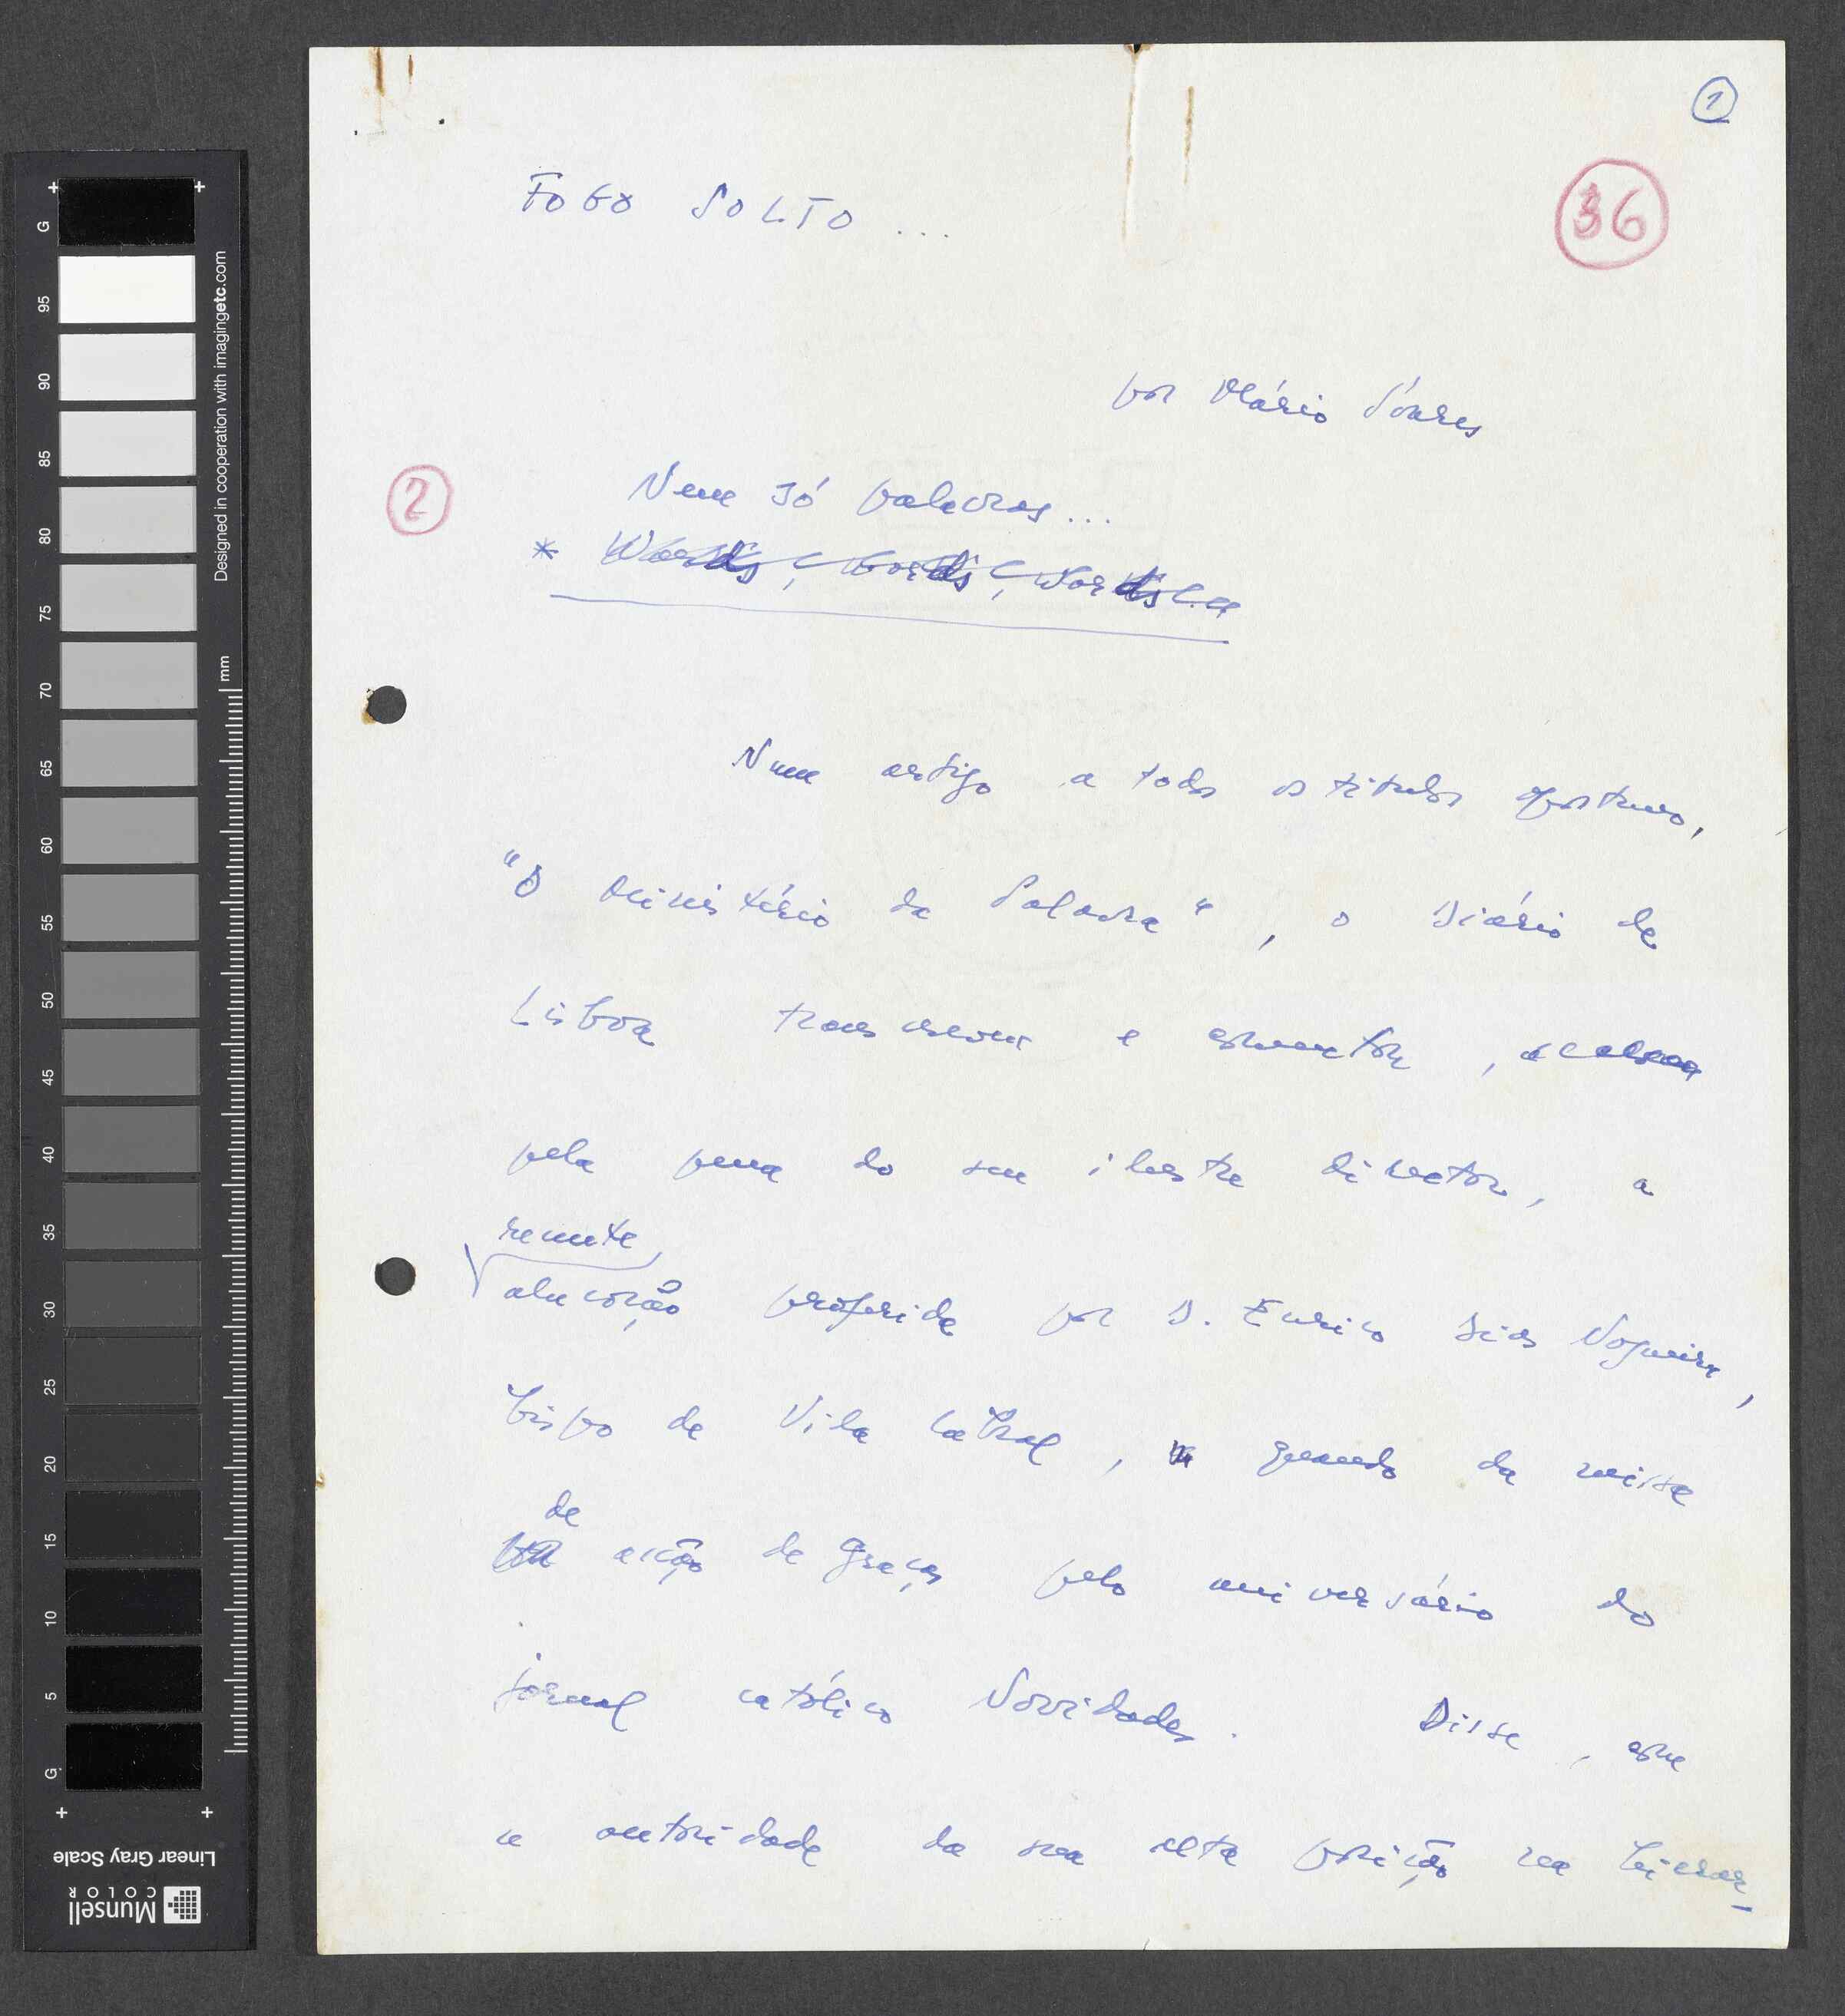 1
36
FOGO SOLTO ...
por Mário Soares
2
Nem só palavras...
* Words, Words, Words...
Num artigo a todos os títulos oportuno,
"O Ministério da Palavra", o Diário de
Lisboa transcreve e comenta,
pela pena do seu ilustre director, a
recente
alocução proferida por D. Eurico Dias Nogueira,
bispo de Vila Cabral, quando da missa
de
acção de Graças pelo aniversário do
jornal católico Novidades. Disse, com
a autoridade da sua alta posição na hierar-
G
95
90
85
80
75
70
65
60
55
50
45
40
35
30
25
20
15
10
5
G
mm
Designed in cooperation with imagingetc.com
Linear Gray Scale
Munsell
COLOR